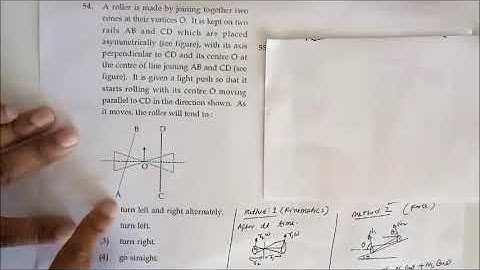 54. A roller is made by joining together two
cones at their vertices O. It is kept on two
rails AB and CD which are placed
asymmetrically (see figure), with its axis
perpendicular to CD and its centre O at
the centre of line joining AB and CD (see
figure). It is given a light push so that it
starts rolling with its centre O moving
parallel to CD in the direction shown. As
it moves, the roller will tend to :
B D
A C
turn left and right alternately.
turn left.
(3) turn right.
(4) go straight.
55
Method: 1 (Kinematics)
After dt time.
Method 2 (Force)